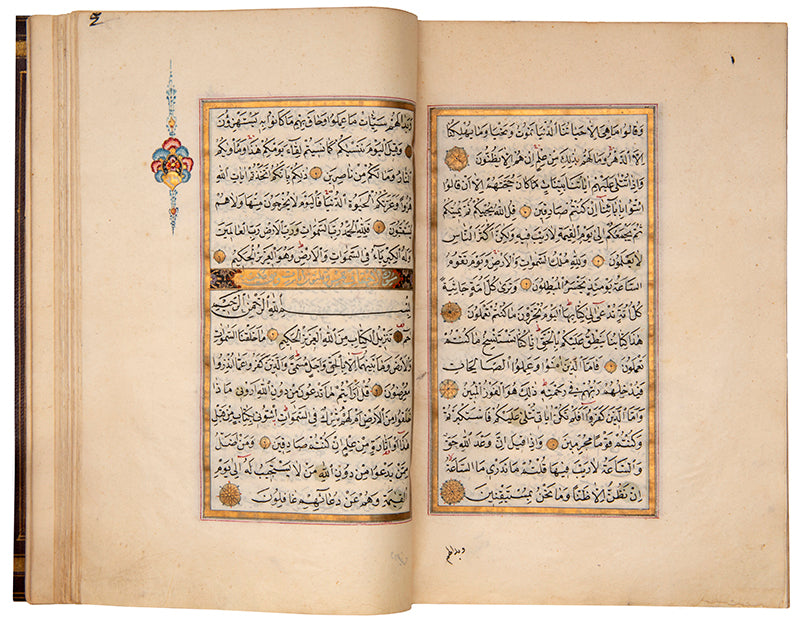 وَقَالُوا مَا هِيَ اِلَّا حَيَاتُنَا الدُّنْيَا نَمُوتُ وَنَحْيَا وَمَا يُهْلِكُنَا
اِلَّا الدَّهْرُ وَمَا لَهُمْ بِذٰلِكَ مِنْ عِلْمٍ اِنْ هُمْ اِلَّا يَظُنُّونَ
وَاِذَا تُتْلٰى عَلَيْهِمْ اٰيَاتُنَا بَيِّنَاتٍ مَا كَانَ حُجَّتَهُمْ اِلَّا اَنْ قَالُوا
ائْتُوا بِاٰبَائِنَا اِنْ كُنْتُمْ صَادِقِينَ قُلِ اللهُ يُحْيِيكُمْ ثُمَّ يُمِيتُكُمْ
ثُمَّ يَجْمَعُكُمْ اِلٰى يَوْمِ الْقِيٰمَةِ لَا رَيْبَ فِيهِ وَلٰكِنَّ اَكْثَرَ النَّاسِ
لَا يَعْلَمُونَ وَلِلّٰهِ مُلْكُ السَّمٰوَاتِ وَالْاَرْضِ وَيَوْمَ تَقُومُ
السَّاعَةُ يَوْمَئِذٍ يَخْسَرُ الْمُبْطِلُونَ وَتَرٰى كُلَّ اُمَّةٍ جَاثِيَةً
كُلُّ اُمَّةٍ تُدْعٰى اِلٰى كِتَابِهَا اَلْيَوْمَ تُجْزَوْنَ مَا كُنْتُمْ تَعْمَلُونَ
هٰذَا كِتَابُنَا يَنْطِقُ عَلَيْكُمْ بِالْحَقِّ اِنَّا كُنَّا نَسْتَنْسِخُ مَا كُنْتُمْ
تَعْمَلُونَ فَاَمَّا الَّذِينَ اٰمَنُوا وَعَمِلُوا الصَّالِحَاتِ
فَيُدْخِلُهُمْ رَبُّهُمْ فِي رَحْمَتِهِ ذٰلِكَ هُوَ الْفَوْزُ الْمُبِينُ
وَاَمَّا الَّذِينَ كَفَرُوا اَفَلَمْ تَكُنْ اٰيَاتِي تُتْلٰى عَلَيْكُمْ فَاسْتَكْبَرْتُمْ
وَكُنْتُمْ قَوْمًا مُجْرِمِينَ وَاِذَا قِيلَ اِنَّ وَعْدَ اللهِ حَقٌّ
وَالسَّاعَةُ لَا رَيْبَ فِيهَا قُلْتُمْ مَا نَدْرِي مَا السَّاعَةُ
اِنْ نَظُنُّ اِلَّا ظَنًّا وَمَا نَحْنُ بِمُسْتَيْقِنِينَ
وبدا لهم
وَبَدَا لَهُمْ سَيِّئَاتُ مَا عَمِلُوا وَحَاقَ بِهِمْ مَا كَانُوا بِهِ يَسْتَهْزِؤُنَ
وَقِيلَ الْيَوْمَ نَنْسٰيكُمْ كَمَا نَسِيتُمْ لِقَاءَ يَوْمِكُمْ هٰذَا وَمَأْوٰيكُمُ
النَّارُ وَمَا لَكُمْ مِنْ نَاصِرِينَ ذٰلِكُمْ بِاَنَّكُمُ اتَّخَذْتُمْ اٰيَاتِ اللهِ
هُزُوًا وَغَرَّتْكُمُ الْحَيٰوةُ الدُّنْيَا فَالْيَوْمَ لَا يُخْرَجُونَ مِنْهَا وَلَا هُمْ
يُسْتَعْتَبُونَ فَلِلّٰهِ الْحَمْدُ رَبِّ السَّمٰوَاتِ وَرَبِّ الْاَرْضِ رَبِّ الْعَالَمِينَ
وَلَهُ الْكِبْرِيَاءُ فِي السَّمٰوَاتِ وَالْاَرْضِ وَهُوَ الْعَزِيزُ الْحَكِيمُ
بِسْمِ اللهِ الرَّحْمٰنِ الرَّحِيمِ
حٰمٓ تَنْزِيلُ الْكِتَابِ مِنَ اللهِ الْعَزِيزِ الْحَكِيمِ مَا خَلَقْنَا السَّمٰوَاتِ
وَالْاَرْضَ وَمَا بَيْنَهُمَا اِلَّا بِالْحَقِّ وَاَجَلٍ مُسَمًّى وَالَّذِينَ كَفَرُوا عَمَّا اُنْذِرُوا
مُعْرِضُونَ قُلْ اَرَاَيْتُمْ مَا تَدْعُونَ مِنْ دُونِ اللهِ اَرُونِي مَاذَا
خَلَقُوا مِنَ الْاَرْضِ اَمْ لَهُمْ شِرْكٌ فِي السَّمٰوَاتِ ائْتُونِي بِكِتَابٍ مِنْ قَبْلِ
هٰذَا اَوْ اَثَارَةٍ مِنْ عِلْمٍ اِنْ كُنْتُمْ صَادِقِينَ وَمَنْ اَضَلُّ
مِمَّنْ يَدْعُوا مِنْ دُونِ اللهِ مَنْ لَا يَسْتَجِيبُ لَهُ اِلٰى يَوْمِ
الْقِيٰمَةِ وَهُمْ عَنْ دُعَائِهِمْ غَافِلُونَ